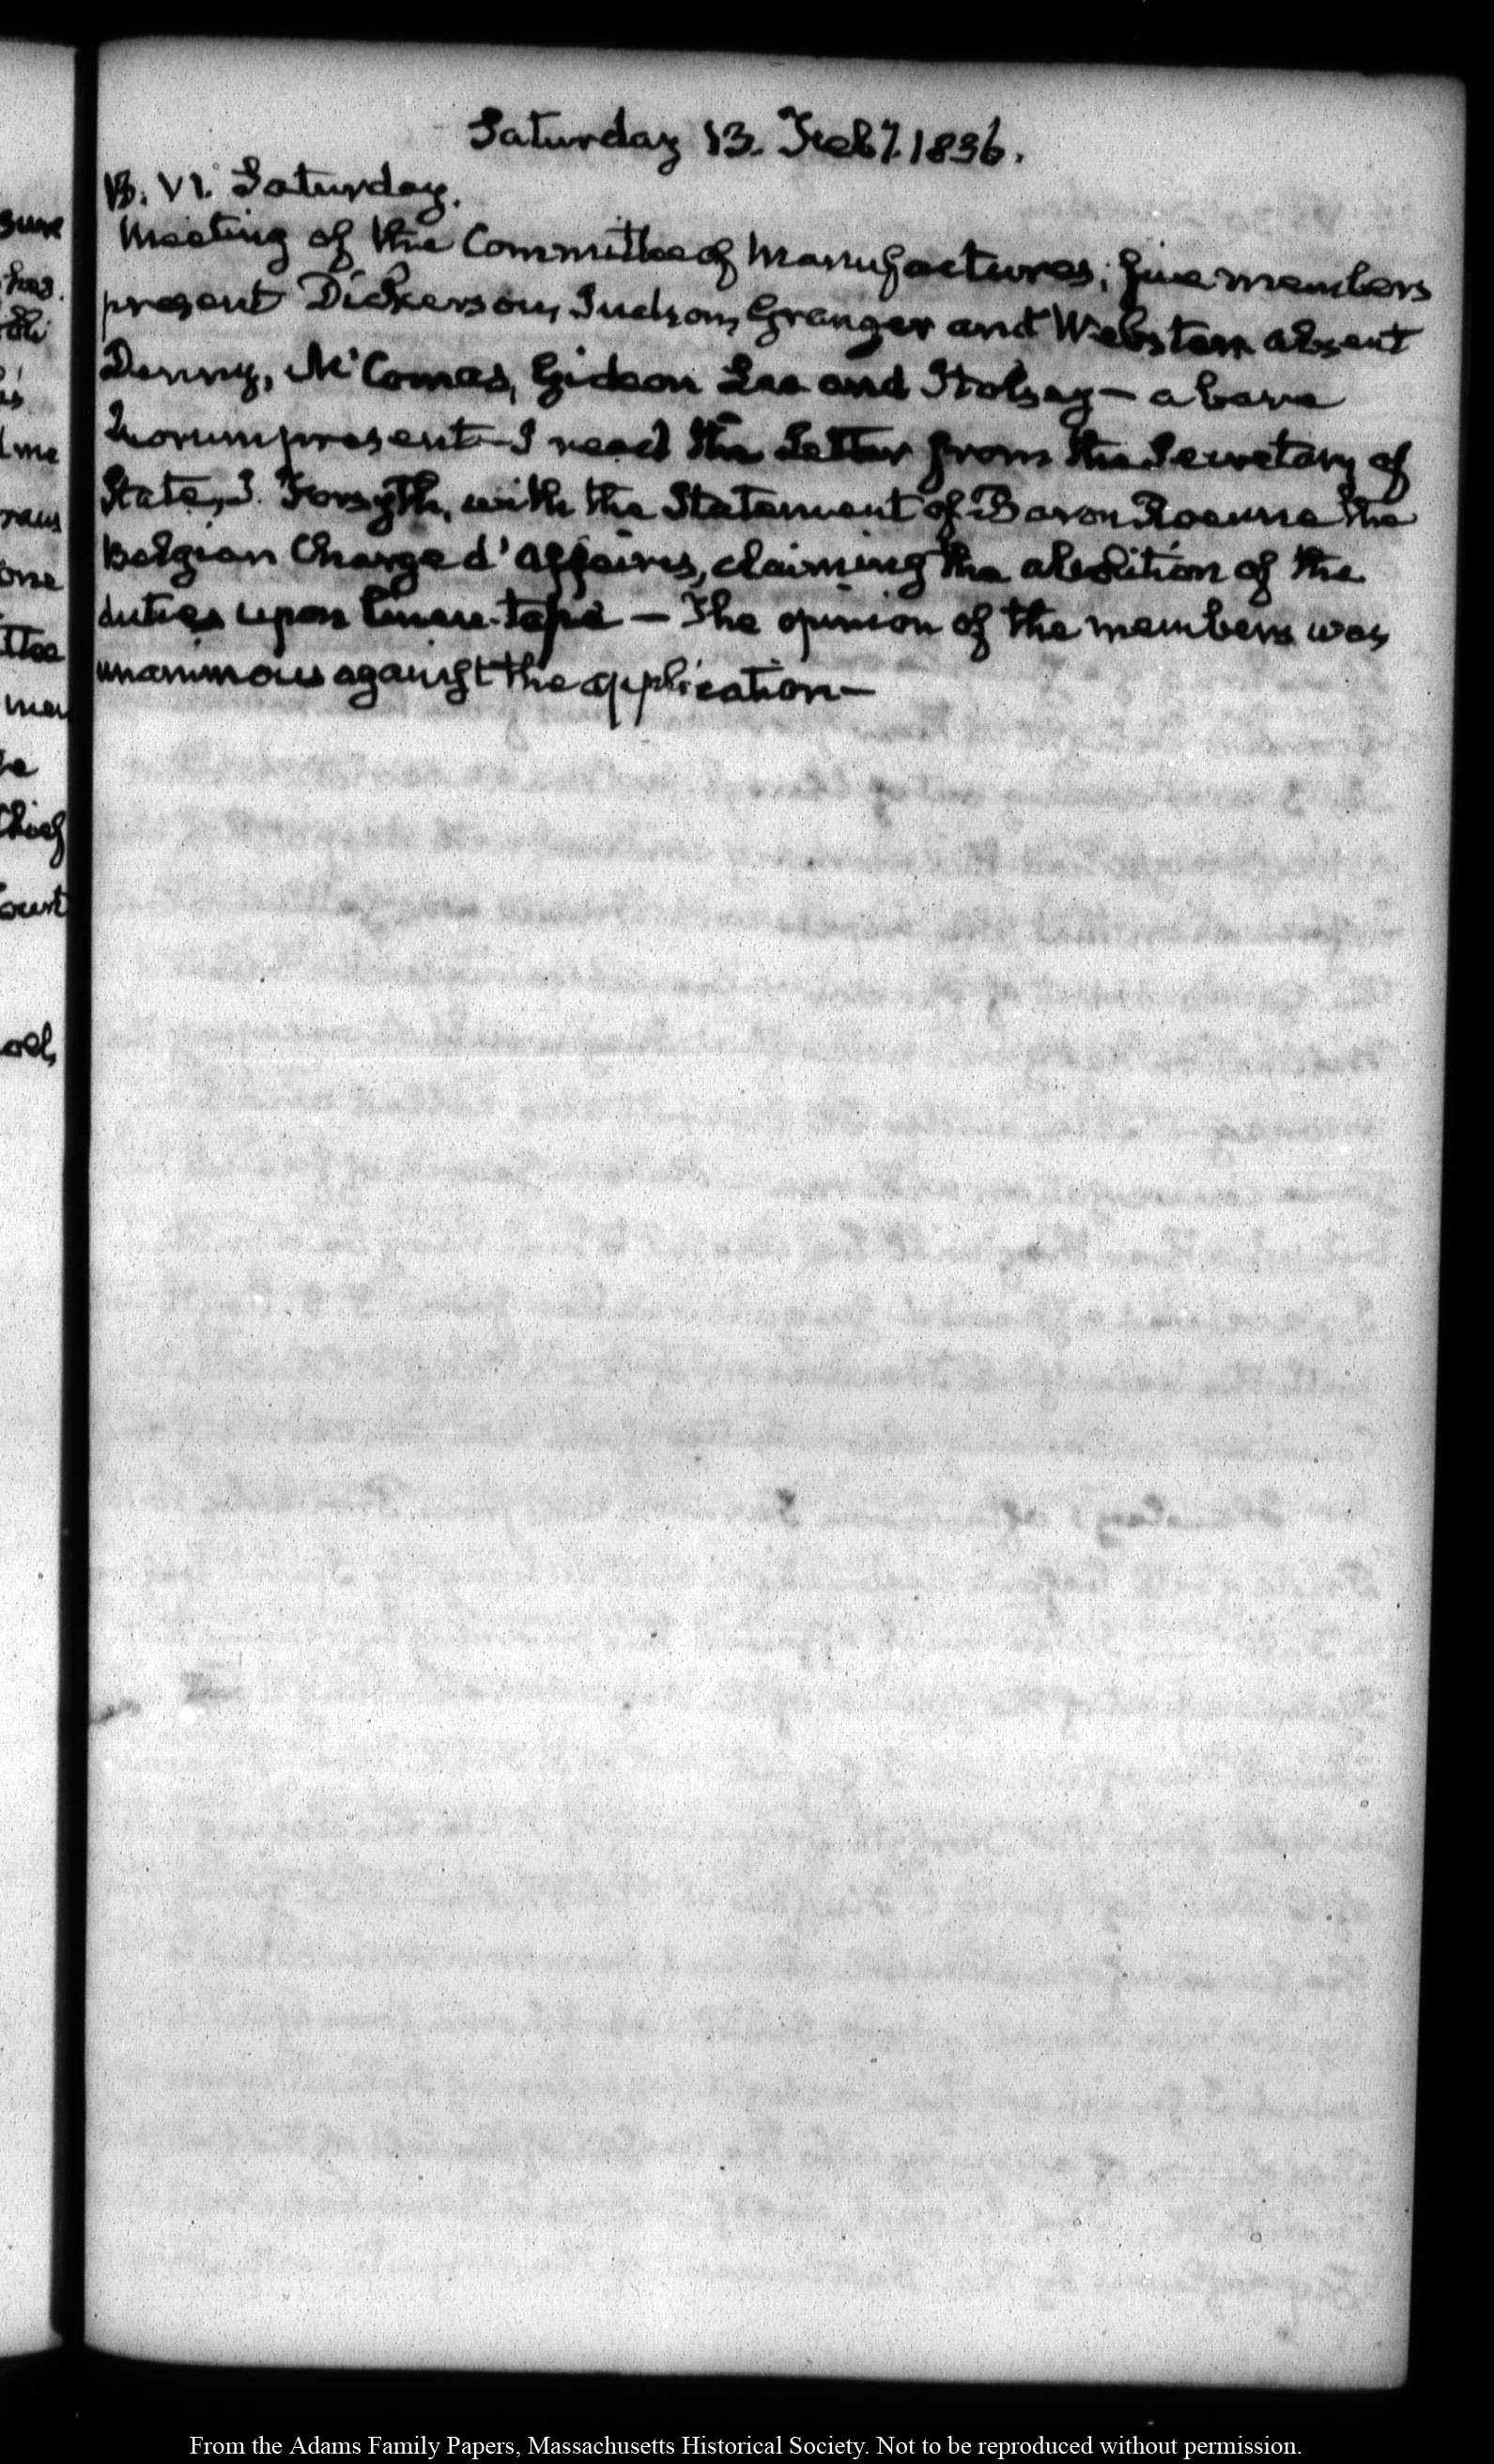 Saturday 13. Feby. 1836.
13. VI. Saturday.
Meeting of the Committee of Manufactures; five members
present Dickerson, Judson, Granger and Webster absent
Denny, McComas, Gideon Lee and Halsey — a bare
Quorum present — I read the Letter from the Secretary of
State, J. Forsyth, with the Statement of Baron the
Belgian Chargé d'Affaires, claiming the abolition of the
duties upon linen-tape — The opinion of the members was
unanimous against the application —
sure
me
one
ttee
chief
Court
From the Adams Family Papers, Massachusetts Historical Society. Not to be reproduced without permission.